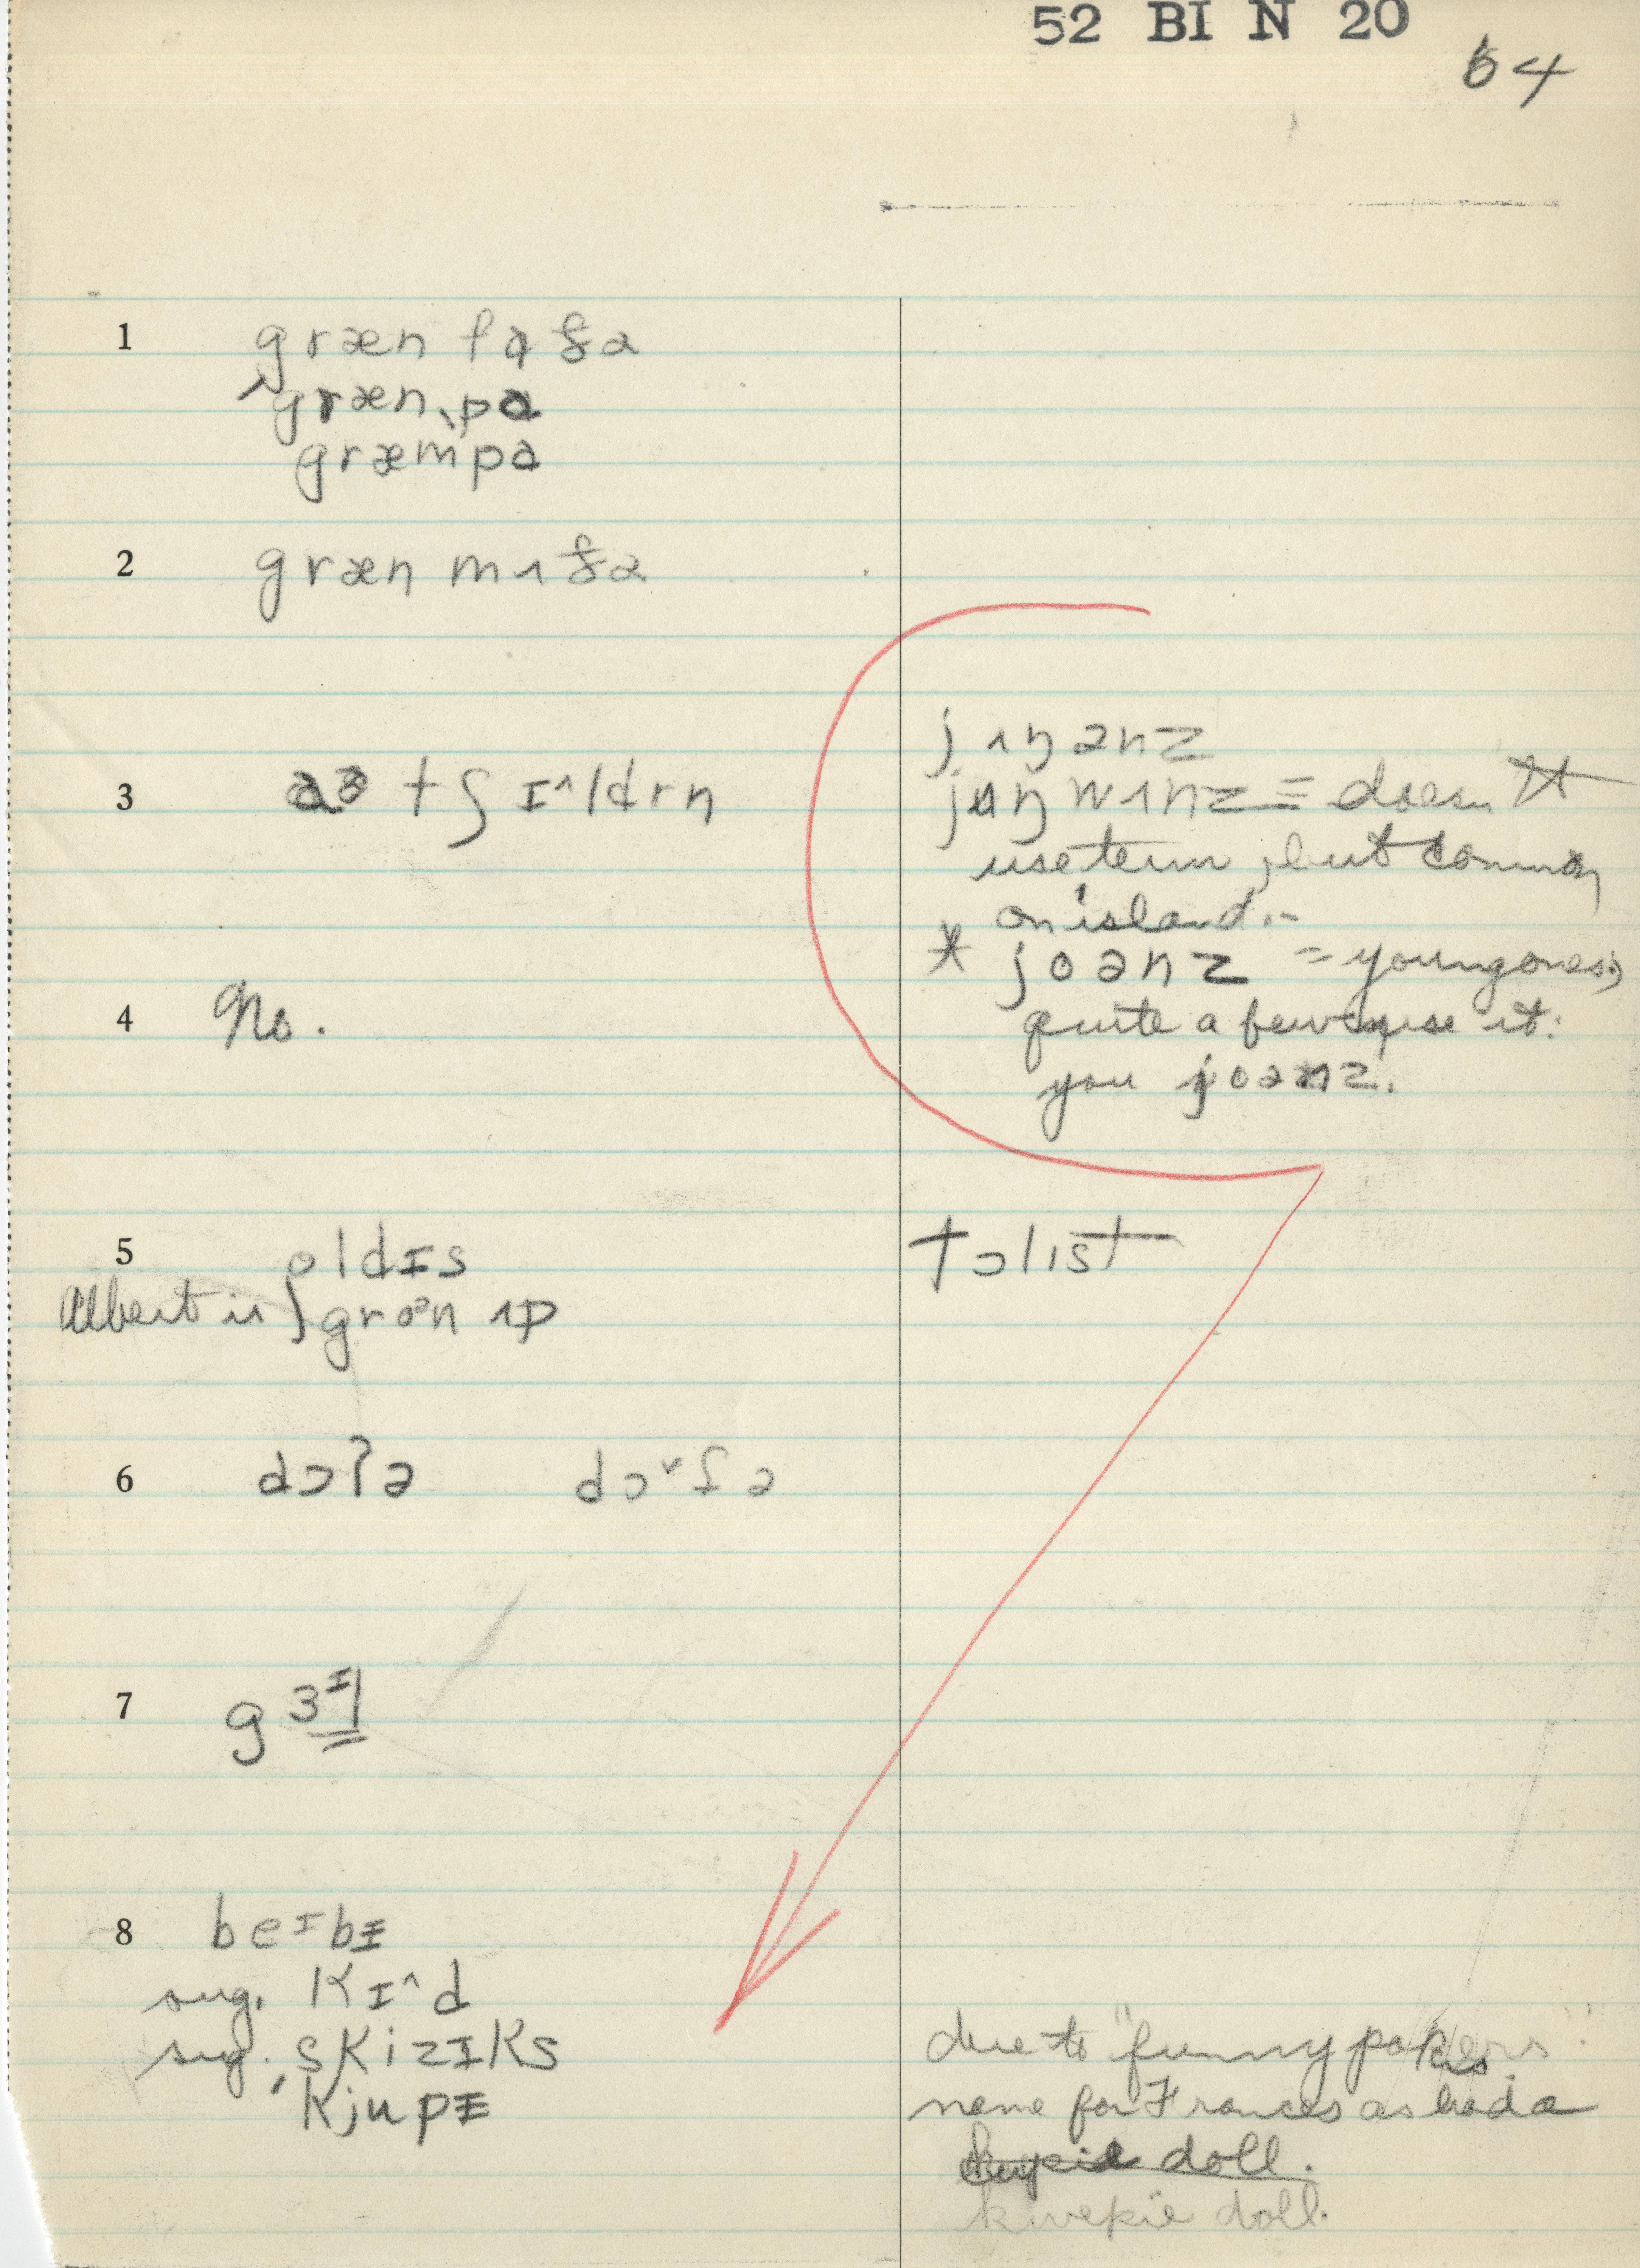 52 BI N 20
64
1 græn fɑðə
græn pɑ
græmpə
2 græn mʌðə
jʌŋənz
3 tʃɪ^ldrn
jʌŋwʌnz = doesn't
use term, but common
on island.-
* joənz = young ones;
4 No.
quite a few use it:
you joənz.
5 oldɪs
tɔlɪst
Albert is groən ʌp
6 dɔʔə dɔˇʃə
7 gɜɪl
8 beɪbɪ
sug. kɪ^d
sug. skizɪks
due to "funny papers".
kjupɪ
name for Frances as had a
doll.
kwepie doll.